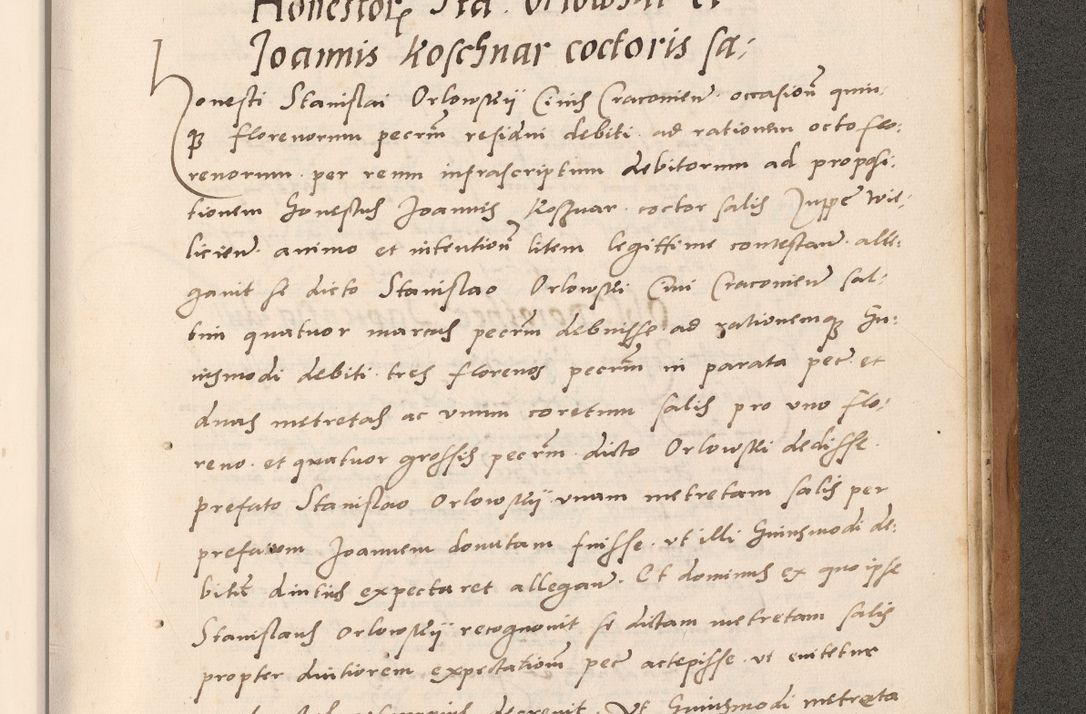 Honestor Sta. Orlowski et
Joannis Koschnar coctoris sa:
Honesti Stanislai Orlowskij Civis Cracovien occasion quin-
q florenorum pecrm residui debiti ad rationem octo flo:
renorum per reum infrascriptum debitorum ad proposi:
tionem honestus Joannis Koschnar coctor salis Zuppe Wie-
licien animo et intention litem legittime contestan alle:
gavit se dicto Stanislao Orlowski Civi Cracovien sal-
tim quatuor marcas pecrm debuisse ad rationemq hu:
iusmodi debiti tres florenos pecrm in parata pec et
duas metretas ac unum coretum salis pro uno flo:
reno et quatuor grossis pecrm dicto Orlowski dedisse
prefato Stanislao Orlowskij unam metretam salis per
prefatum Joannem donatam fuisse ut illi huiusmodi de:
bitu diutius expectaret allegan. Et dominus ex quo ipse
Stanislaus Orlowskij recognovit se dictam metretam salis
propter diutiorem expectationem pec accepisse ut evitetur
decrevit Ut huiusmodi metreta